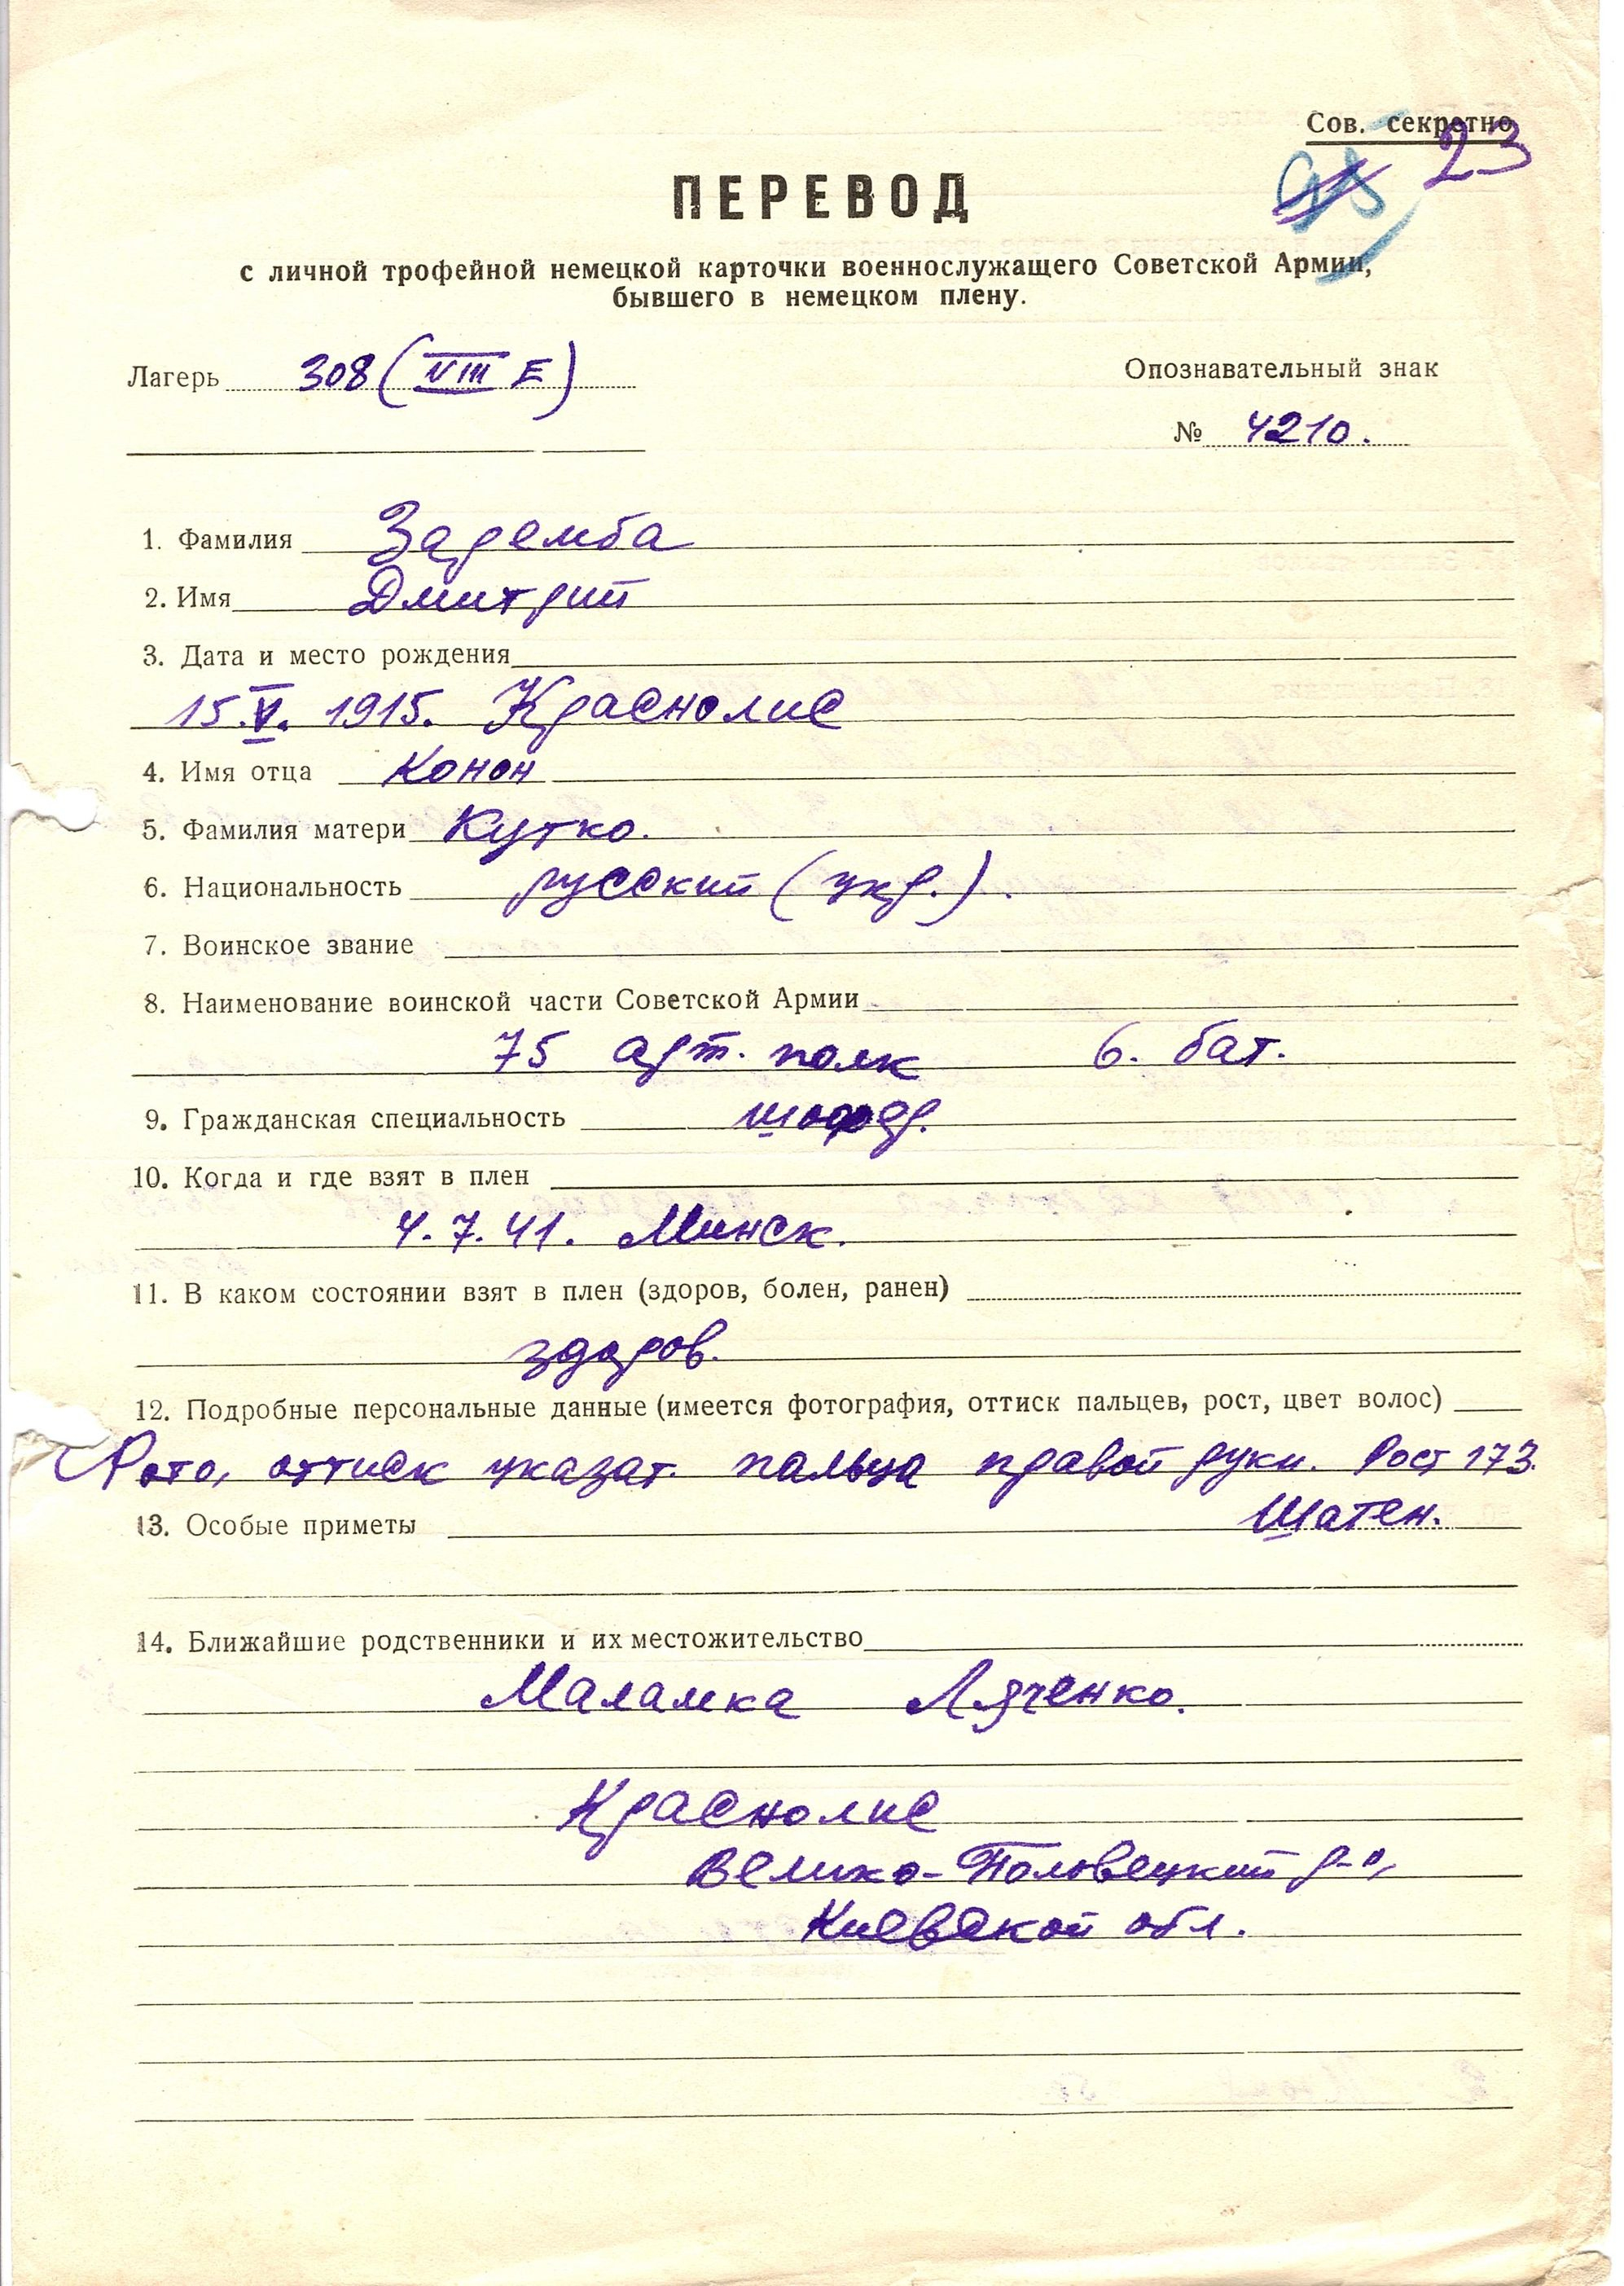 Сов. секретно
23
ПЕРЕВОД
с личной трофейной немецкой карточки военнослужащего Советской Армии,
бывшего в немецком плену.
Лагерь 308 (VIII E)
Опознавательный знак
№ 4210.
1. Фамилия Задемба
2. Имя Дмитрий
3. Дата и место рождения
15.V. 1915. Краснолис
4. Имя отца Конон
5. Фамилия матери Кутко.
6. Национальность русский (укр.).
7. Воинское звание
8. Наименование воинской части Советской Армии
75 арт. полк 6. бат.
9. Гражданская специальность шофер.
10. Когда и где взят в плен
4.7.41. Минск.
11. В каком состоянии взят в плен (здоров, болен, ранен)
здоров.
12. Подробные персональные данные (имеется фотография, оттиск пальцев, рост, цвет волос)
Фото, оттиск указат. пальца правой руки. Рост 173.
Шатен.
13. Особые приметы
14. Ближайшие родственники и их местожительство
Маламка Ляченко.
Краснолис
Велико-Половецкий р-н,
Киевской обл.